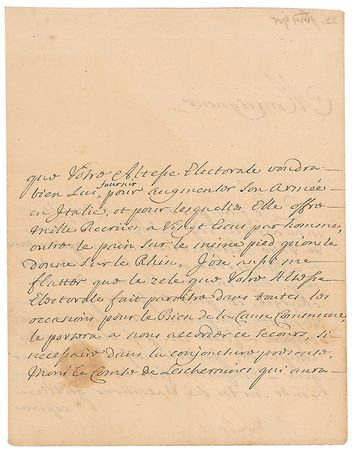 Monseigneur
que Votre Altesse Electorale voudra
bien Lui fournir pour augmenter son Armée
en Italie, et pour lesquelles Elle offre
mille Recrües a Vingt Ecus par homme,
outre le pain sur le même pied qu'on le
donne sur le Rhin, J'ose aussi me
flatter que le zele que Votre Altesse
Electorale fait paroitre dans toutes les
occasions pour le Bien de la Cause Commune,
le portera a nous accorder ce secours, si
necessaire dans la conjoncture presente,
le Comte de Lescheraines qui aura